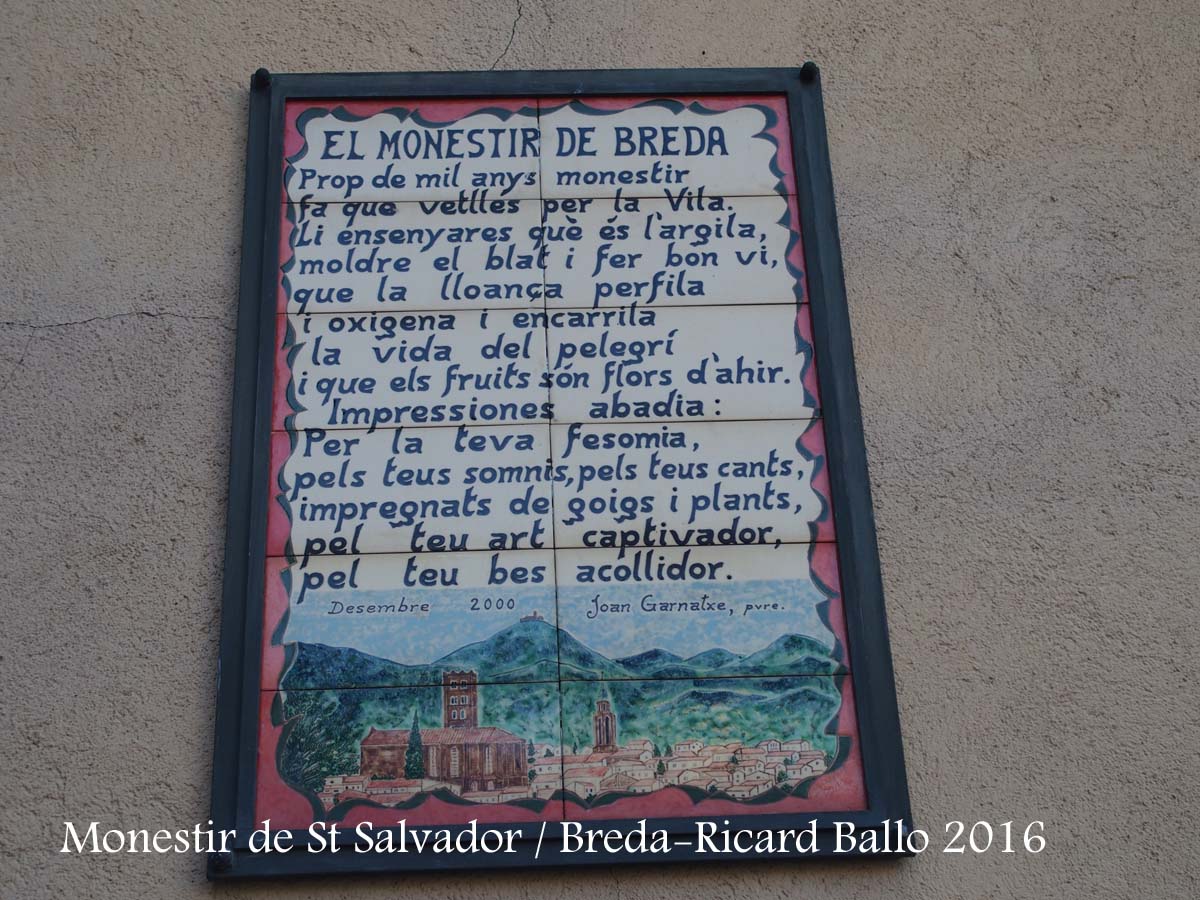 EL MONESTIR DE BREDA
Prop de mil anys monestir
fa que vetlles per la Vila.
Li ensenyares què és l'argila,
moldre el blat i fer bon vi,
que la lloança perfila
i oxigena i encarrila
la vida del pelegrí
i que els fruits són flors d'ahir.
Impressiones abadia:
Per la teva fesomia,
pels teus somnis, pels teus cants,
impregnats de goigs i plants,
pel teu art captivador,
pel teu bes acollidor.
Desembre 2000 Joan Garnatxe, pvre.
Monestir de St Salvador / Breda-Ricard Ballo 2016